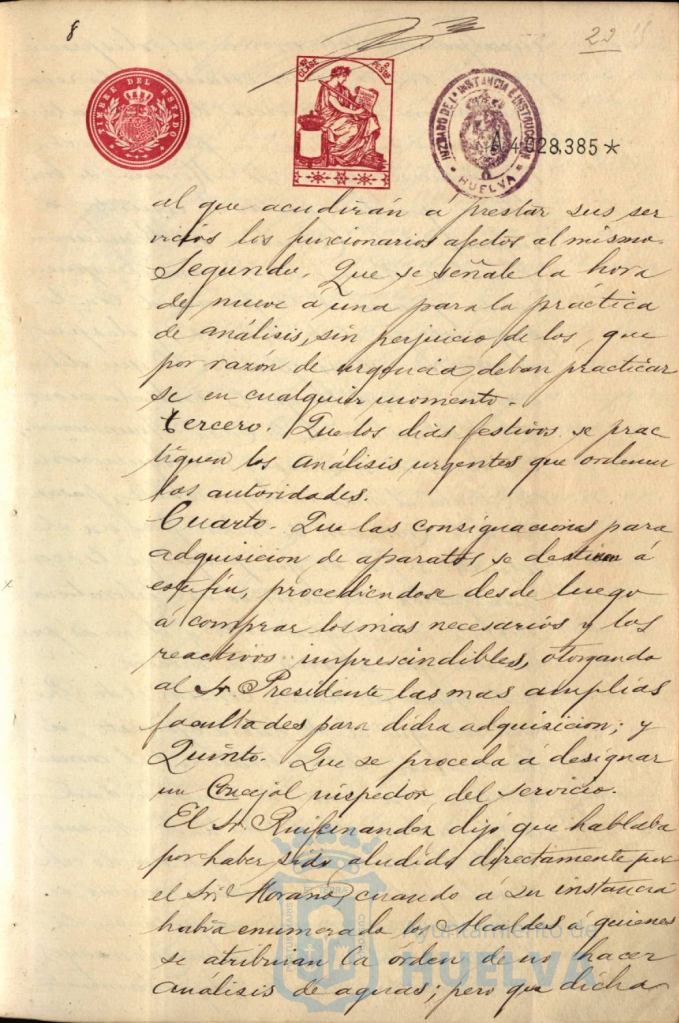 8
22
TIMBRE DEL ESTADO
12ª CLASE
JUZGADO DE 1ª INSTANCIA E INSTRUCCION
HUELVA
A4.028,385*
al que acudirán á prestar sus ser
vicios los funcionarios afectos al mismo.
Segundo. Que se señale la hora
de nueve á una para la práctica
de análisis, sin perjuicio de los que
por razón de urgencia, deban practicar
se en cualquier momento.
tercero. Que los dias festivos se prac
tiquen los análisis urgentes que ordenen
las autoridades.
Cuarto. Que las consignaciones para
adquisicion de aparatos, se destinen á
este fin, procediendose desde luego
á comprar los mas necesarios y los
reactivos imprescindibles, otorgando
al Sr. Presidente las mas amplias
facultades para dicha adquisicion; y
Quinto. Que se proceda á designar
un Concejal inspector del servicio.
El Sr. Ruifernandez dijo que hablaba
por haber sido aludido directamente por
el Sr. Morano, cuando á su instancia
habia enumerado los Alcaldes á quienes
se atribuian la órden de no hacer
análisis de aguas; pero que dicha
Ayuntamiento de
HUELVA